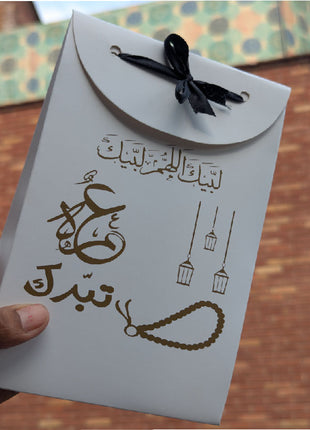 لبّيك اللهمّ لبّيك
عمره
تبّرك